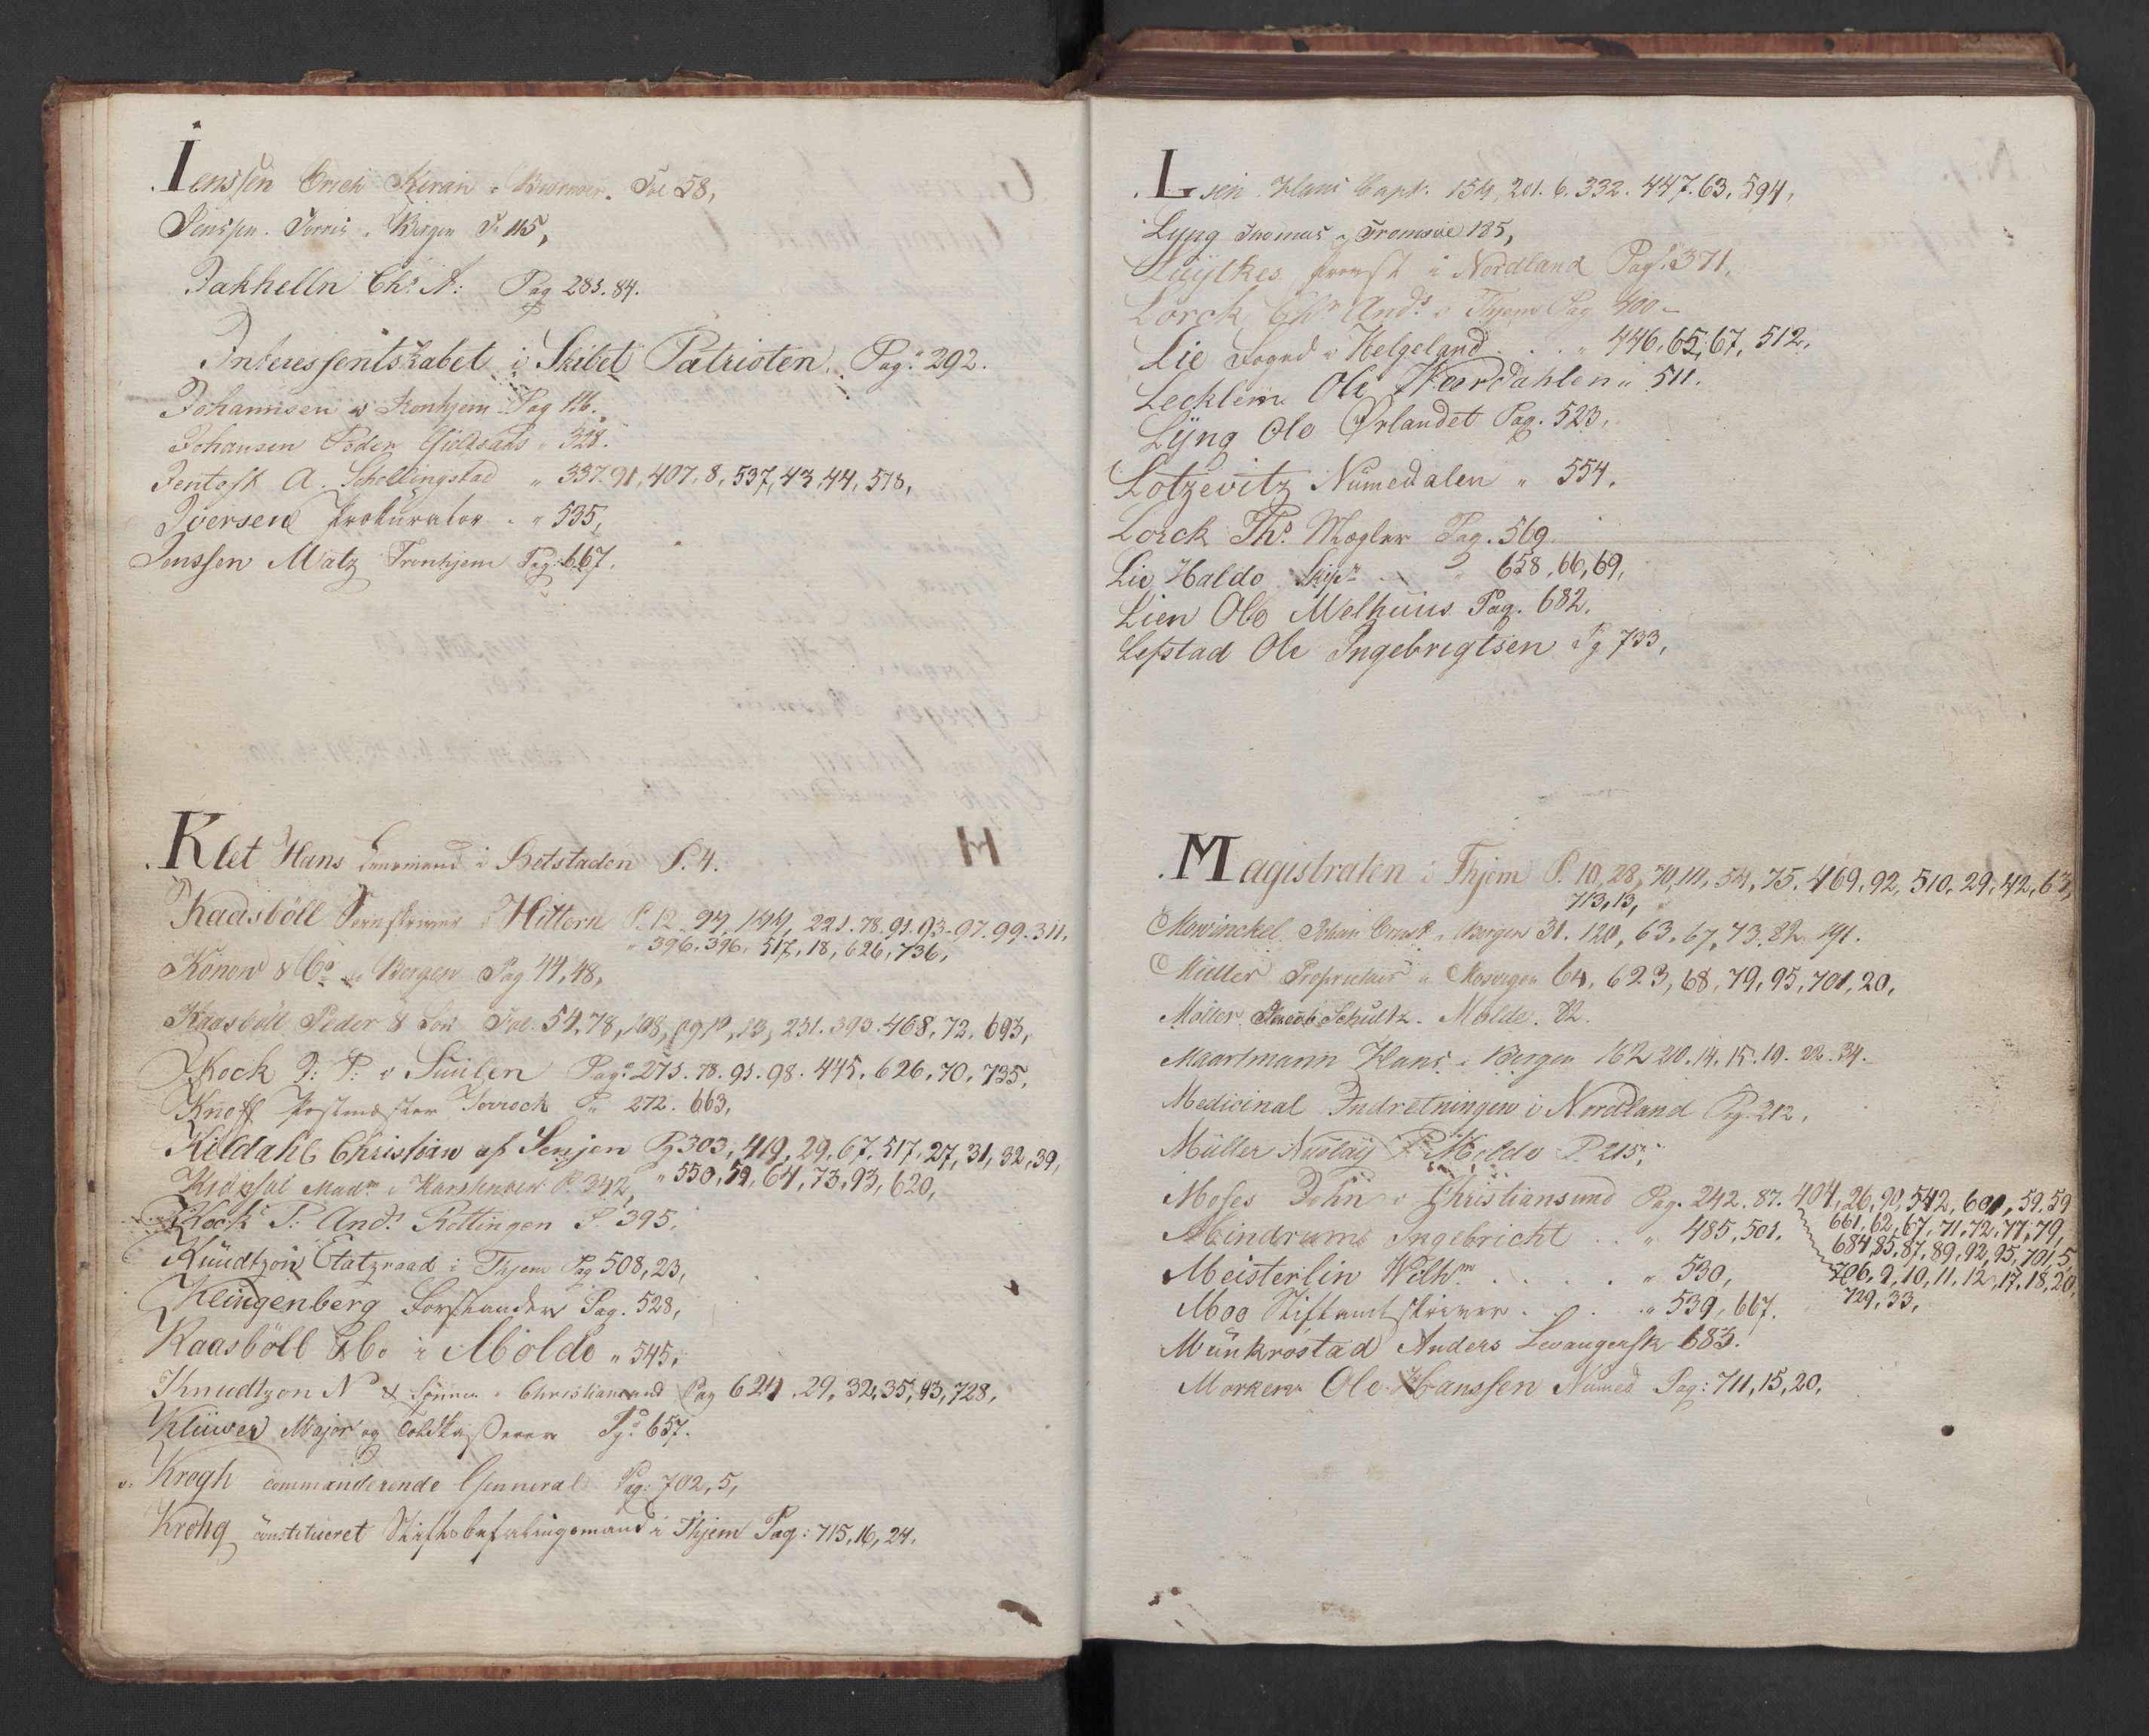 Ienssen Erich Fol 58,
Jenssen. Bergen P 115,
Jakhelln Chr. A: Pag 283. 84.
Interessentskabet i Skibet Patrioten. Pag. 292.
Johannsen Pag 116.
Johansen Peder " 328.
Jentoft A. Schellingstad " 337. 91, 407, 8, 537, 43, 44, 578,
Iversen Prokurator . " 535,
Jenssen Matz Tronhjem Pag: 667.
Klet Hans Lensmand i Betstaden P. 4.
Kaasböll Sorenskriver i Hittern P. 12. 94, 144, 221. 78. 91. 93. 97. 99. 311.
" 396. 396. 517, 18, 626, 736,
Konow & Co i Bergen Pag 44, 48,
Kaasböll Peder & Søn Fol. 54, 78, 108, 09, 10, 13, 231. 393. 468. 72. 693,
Kock J: P: Pag. 275. 78. 91. 98. 445. 626. 70. 735.
Knoff Postmester P. 272. 663,
Kildahl Christian af Senjen Pg 303, 419, 29, 67, 517, 27, 31, 32, 39,
" 550, 59, 64, 73, 93, 620,
Madm i P. 342,
Kock P: And: P. 395.
Knudtzon Etatzraad i Thjem Pag 508, 23,
Klingenberg Forstander Pag. 528,
Kaasböll & Co i Molde " 545,
Knudtzon N & Sönner i Christiansund Pag 624. 29, 32, 35, 43, 728,
Klüwer Major og Toldkasserer Pg. 657.
v. Krogh commanderende Genneral Pag: 702, 5,
Krohg constitueret Stiftsbefalingsmand i Thjem Pag: 715, 16, 24,
H
Hans Capt. 154, 201. 6. 332. 447. 63. 594,
Lyng Thomas i Tromsöe 185,
i Nordland Pag. 371,
Lorck Chr. And. i Thjem Pag 400
Lie Foged i Helgeland . . . " 446, 65, 67, 512,
Lecklem Ole Værdahlen " 511.
Lyng Ole Ørlandet Pag. 523,
Lotzevitz Numedalen " 554,
Lorck Ths. Mægler Pag. 569
Lie Haldo Skipr . . " 658, 66, 69,
Lien Ole Melhuus Pag. 682.
Lefstad Ole Ingebrigtsen Pg 733,
Magistraten i Thjem P. 10, 28, 70, 10, 54, 75. 469. 92, 510. 29, 42, 63,
713, 13,
Mowinckel Johan Ernst i Bergen 31. 120, 63, 67, 73. 82. 191.
Müller Proprietair i Mosvigen 64, 623, 68, 79, 95, 701, 20,
Möller Jacob Schultz. Molde. 82.
Maartmann Hans i Bergen 162 210. 14. 15. 19. 22. 34.
Medicinal Indretningen i Nordland Pg. 212,
Müller Nicolay Molde P. 215,
Moses John i Christiansund Pag. 242. 87. 404, 26, 90, 542, 601, 59, 59
661, 62, 67, 71, 72, 77, 79,
Meindrum Ingebricht . . " 485, 501.
684, 85, 87, 89, 92, 95, 701, 5,
Meisterlin Wilhm . . . . " 530,
706, 9, 10, 11, 12, 17, 18, 20,
Moe Stiftamtskriver . . . " 539, 667.
729, 33,
Munkröstad Anders Levangersk 683.
Morken Ole Hanssen Numed Pag: 711, 15, 20,